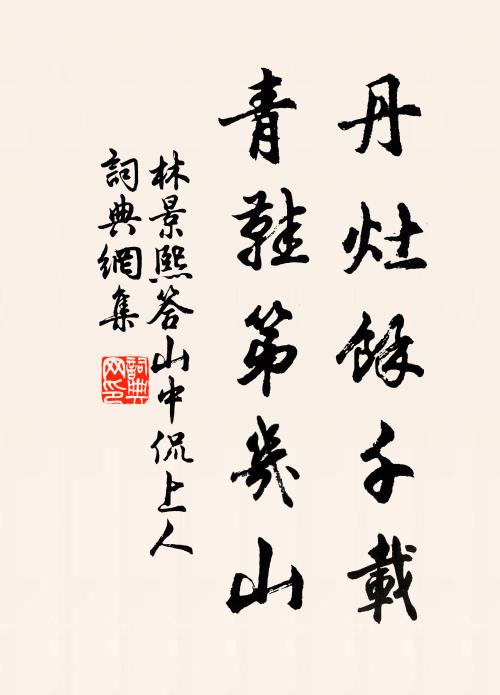 丹灶餘千載
青鞋第幾山
林景熙答山中侃上人
詞典網集
詞典網印